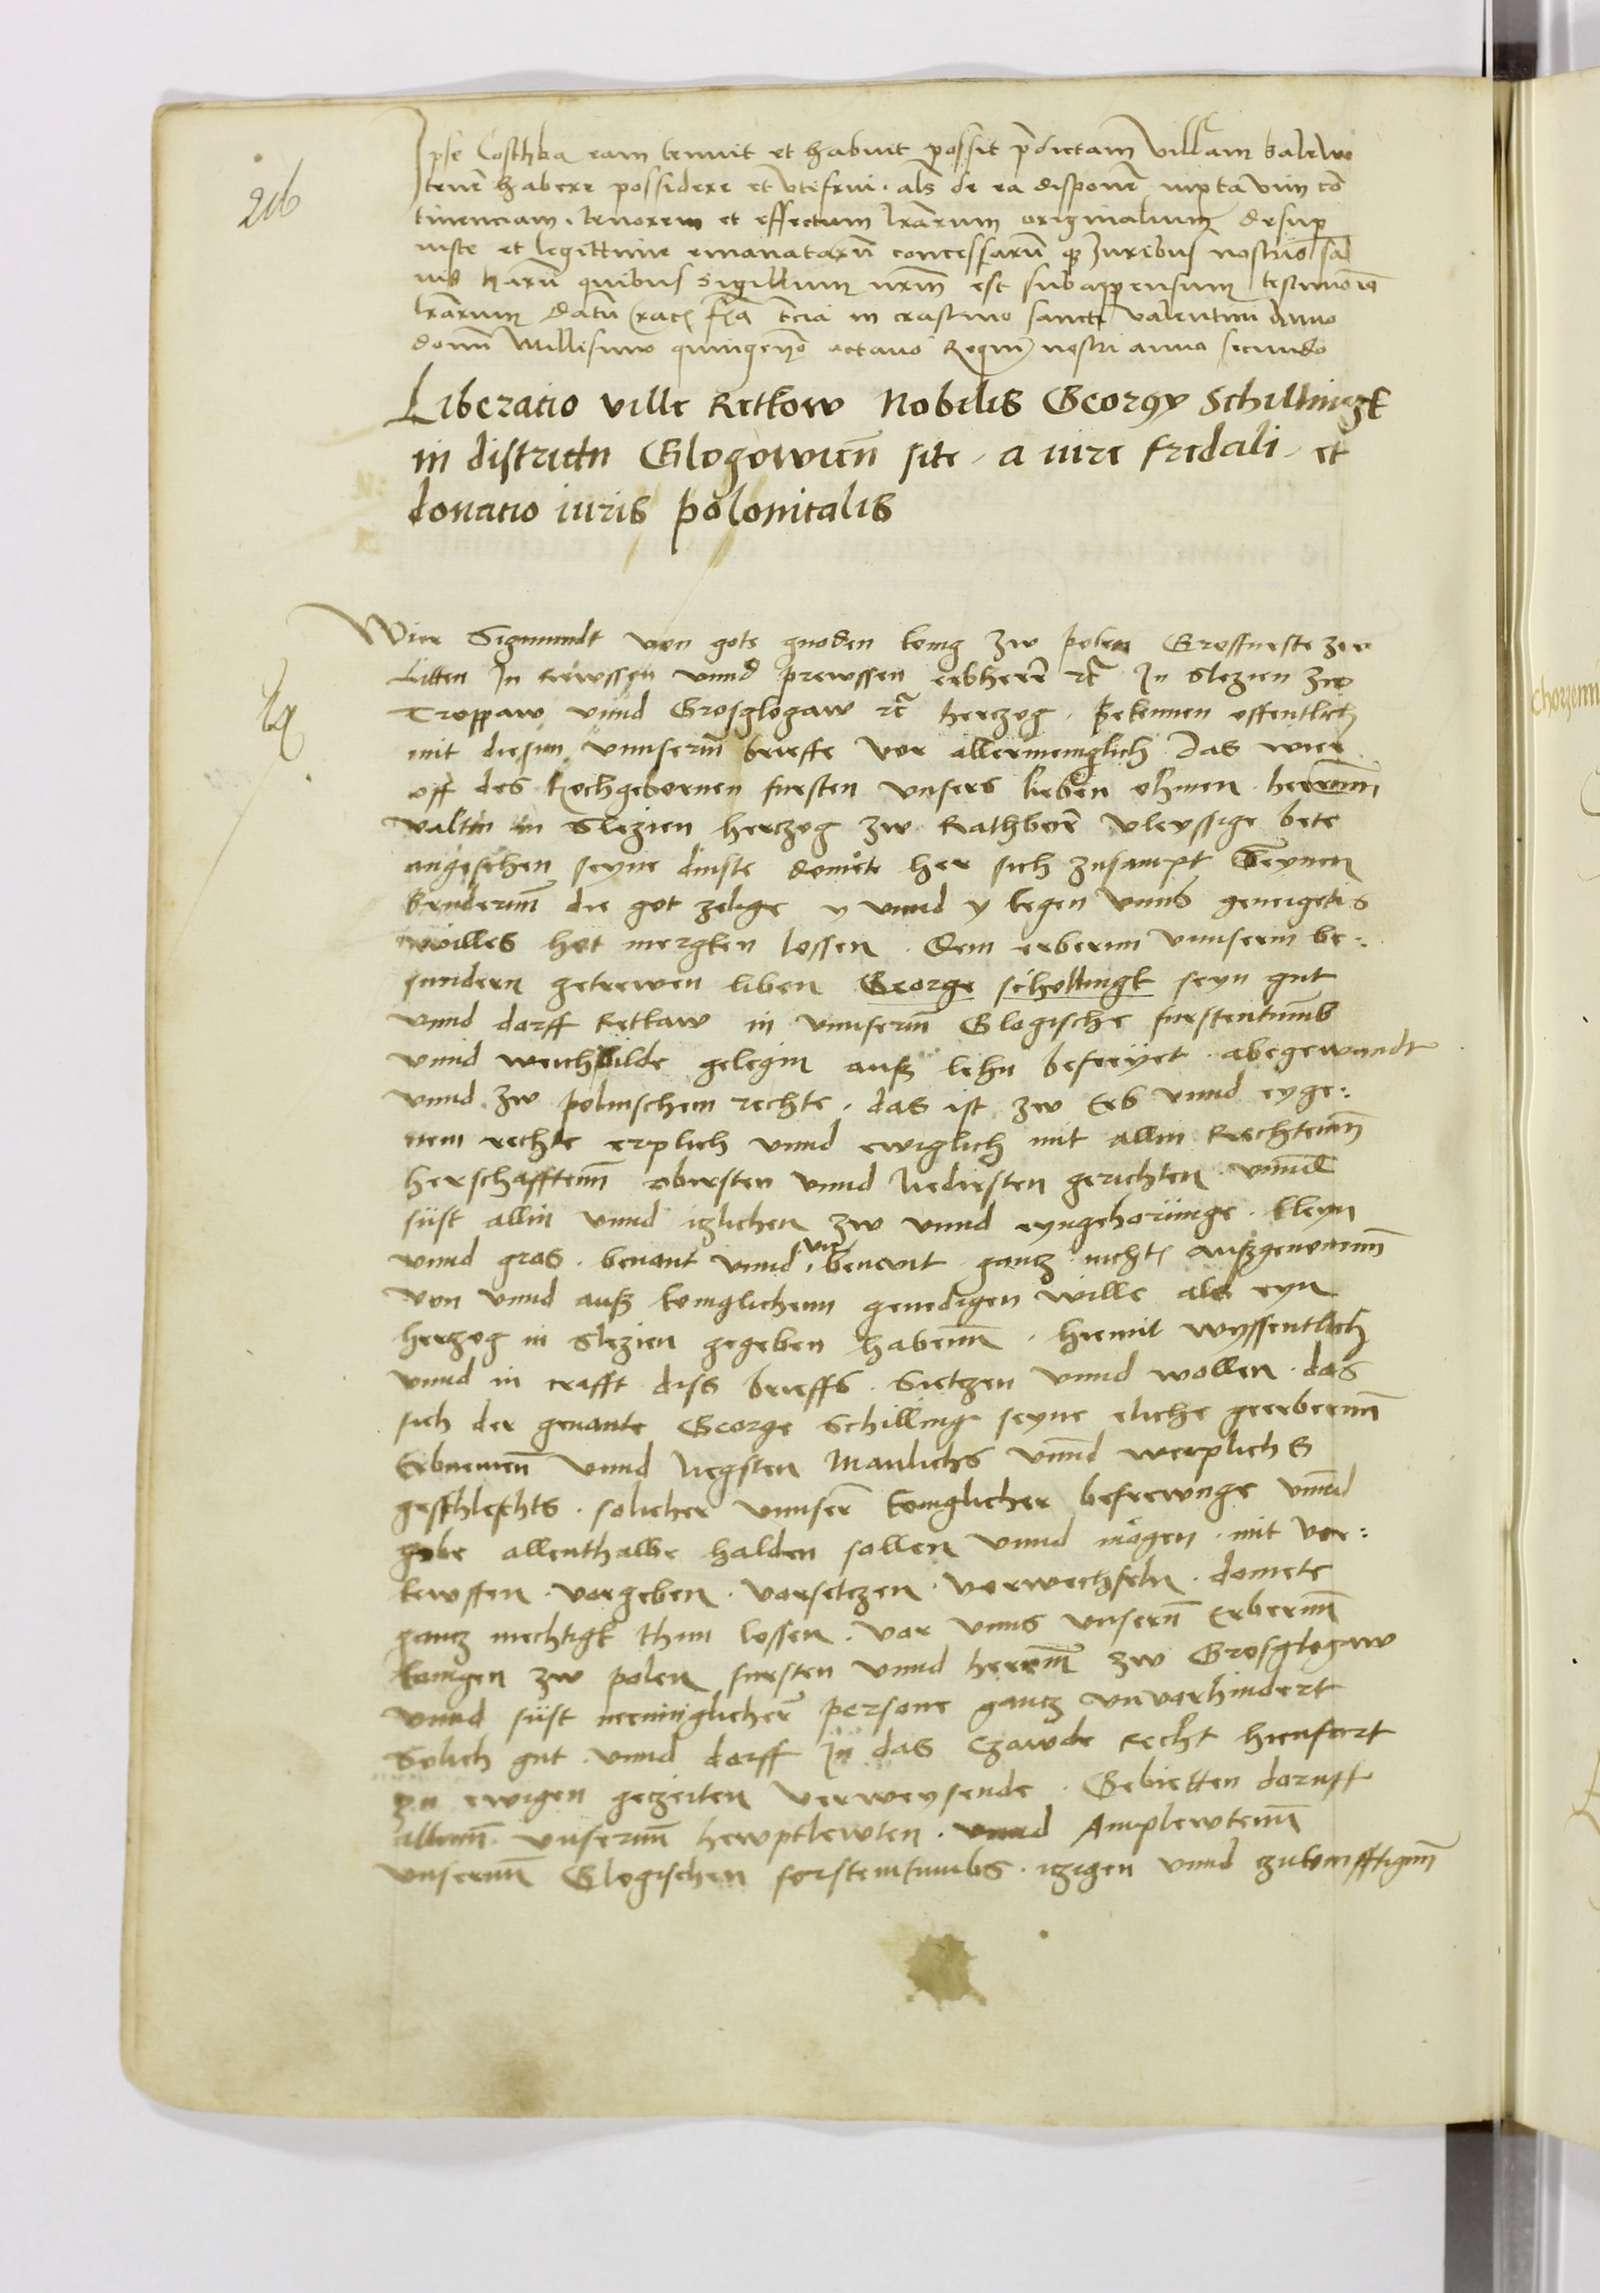 216
Ipse Costhka eam tenuit et habuit possit p̄dictam villam balewo
tener̄ habere possidere et vtifrui. als de ea disponer̄ iuxta vim cō
tinenciam. tenorem et effectum lrārum originalium desup
iuste et legittime emanatarū concessarū q Iuribus nostris sal
uis harū quibus sigillum nrm̄ est subappensum testimonio
lrārum datū Crac fer̄ia tc̄ia in crastino sancti valentini Anno
domī Millesimo quingenō octavo Regni nostri anno secundo
Liberatio ville Retkow Nobilis Georgy Schillingk
in districtu Glogowien̄ site a iure fredali et
donatio iuris polonicalis
Wier Sigmundt von gots gnoden konig zw polen Grosfurste zw
Litten In rewssen vnnd prewssen erbherr̄ rc̄ In Slezien zw
Troppaw vnnd Grosglogaw rc̄ herczog. Bekennen offentlich
mit diesim vnnserm̄ brieffe vor allermeniglich das wier
off des hochgebornen fursten vnsers lieben ohmen herenn̄
valtin in Slezien herczog zw Rathbor̄ vleyssige bete
angesehen seyne dinste domite her sich zusampt seynen
brudernn̄ die got zelige y vnnd y kegen vnns geneigetis
willes hot mergken lossen. Dem erbern vnnserm be:
sundern getrewen liben George schillingk seyn gut
vnnd dorff Retkaw in vnnserm̄ Glogische furstentumb
vnnd weichbilde gelegin auß lehn befreyet. abegewandt
vnnd zw polnischem rechte. das ist zw Erb vnnd eyge:
nem rechte erplich vnnd ewiglich mit allin Rechtenn̄
herschafftenn̄ obirsten vnnd niedirsten gerichten vnnd
süst allin vnnd iczlichen zw vnnd eyngehorunge. kleyn
vnnd gros. benant vnnd vn benant gantz nichts außgenomm̄
von vnnd auß koniglichenn genedigen wille als eyn
herczog in Slezien gegeben habenn̄. hiemit wyssentlich
vnnd in crafft diss brieffs. Sietzen vnnd wollen. das
sich der genante George Schilling seyne eliche geerbenn̄
Erbnemen̄ vnnd negsten Manlichs vnnd weyplichs
geschlechts. solicher vnnser̄ koniglicher befreunge vnnd
gobe allenthalbe halden sollen vnnd mögen. mit vor:
kewffen. vorgeben. vorsetzen. vorwechseln. domete
gantz mechtigk thun lossen. vor vnns vnsern̄ Erbenn̄
konigen zw polen fursten vnnd herenn̄ zw Grosglogaw
vnnd süst meniglicher̄ persone gantz vnvorhindert
Solich gut vnnd dorff In das Czawde Recht hinfort
zu ewigen geczeiten verweysende. Gebietten doruff
allenn̄ vnsernn̄ hewptlewten. vnnd Amplewtenn̄
vnsernn̄ Glogischen forstentumbs. itzigen vnnd zukonfftigenn̄